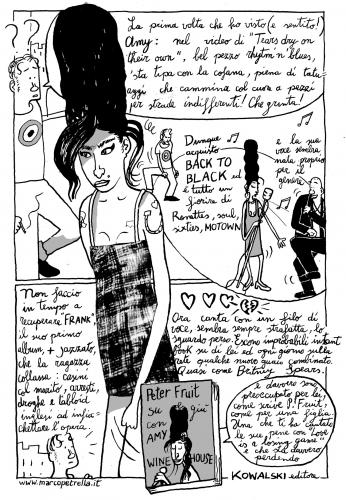 La prima volta che ho visto (e sentito!)
Amy: nel video di "Tears dry on
their own", bel pezzo rhytm'n'blues,
'sta tipa con la cofana, piena di tatu-
aggi che cammina col cuore a pezzi
per strade indifferenti! Che grinta!
? ?
Dunque
acquisto
BACK TO
BLACK ed
è tutto un
fiorire di
Ronettes, soul,
sixties, MOTOWN
e la sua
voce sembra
nata proprio
per il
genere
Non faccio
in tempo a
recuperare "FRANK",
il suo primo
album, + jazzato,
che la ragazza
collassa: casini
col marito, arresti,
droghe e tabloid
inglesi ad infio-
chettare l'opera.
Ora canta con un filo di
voce, sembra sempre strafatta, lo
sguardo perso. Escono improbabili instant
book su di lei ed ogni giorno sulla
rete qualche nuovo guaio combinato.
Quasi come Britney Spears.
Peter Fruit
su e giù
con
AMY
WINE HOUSE
e davvero son
preoccupato per lei,
come scrive P. Fruit,
come per una figlia.
Una che ti ha cantato
le sue pene con "Love
is a losing game"
e che sta davvero
perdendo
www.marcopetrella.it
KOWALSKI editore